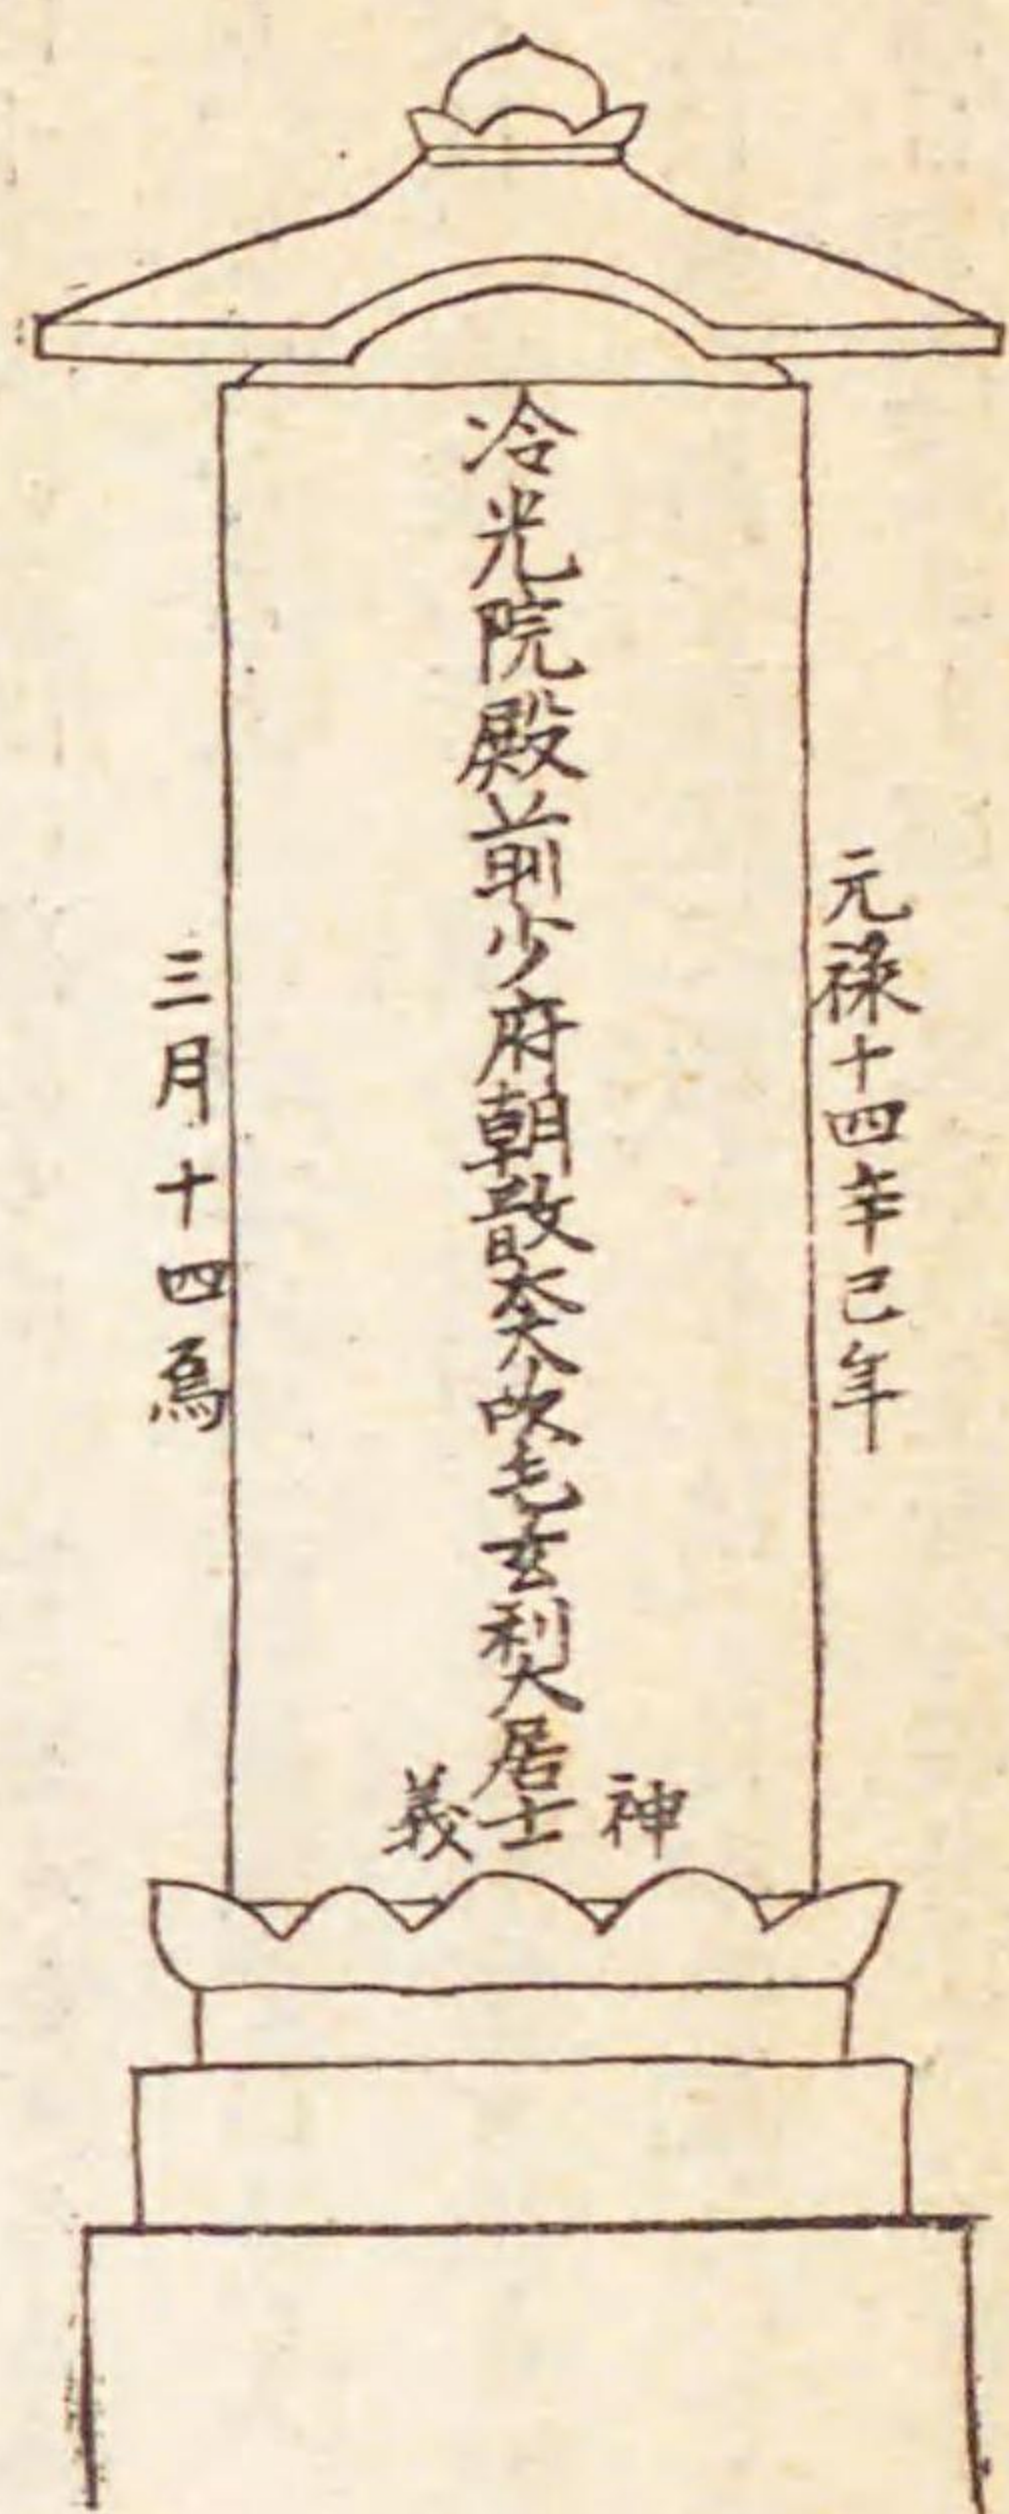 元禄十四辛巳年
冷光院殿前少府朝散太夫吹毛玄利大居士
神義
三月十四